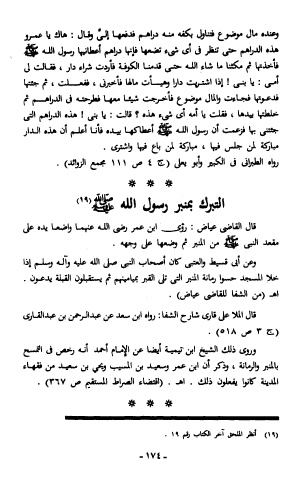 وعنده مال موضوع فتناول بكفه منه دراهم فدفعها إليّ وقال : هاك يا عمرو
هذه الدراهم حتى تنظر في أي شيء تضعها فإنها دراهم أعطانيها رسول الله ﷺ
فأخذتها ثم مكثنا ما شاء الله حتى قدمنا الكوفة فأردت شراء دار ، فقالت لي
أمي : يا بني ! إذا اشتريت دارا وهيأت مالها فأخبرني ، ففعلت ، ثم جئتها
فدعوتها فجاءت والمال موضوع فأخرجت شيئا معها فطرحته في الدراهم ثم
خلطتها بيدها ، فقلت يا أمه أي شيء هذه ؟ قالت : يا بني ! هذه الدراهم التي
جئتني بها فزعمت أن رسول الله ﷺ أعطاكها بيده فأنا أعلم أن هذه الدار
مباركة لمن جلس فيها ، مباركة لمن باع فيها واشترى .
رواه الطبراني في الكبير وأبو يعلى (ج ٤ ص ١١١ مجمع الزوائد) .
* * *
التبرك بمنبر رسول الله ﷺ (١٩)
قال القاضي عياض : رؤي ابن عمر رضي الله عنهما واضعا يده على
مقعد النبي ﷺ من المنبر ثم وضعها على وجهه .
وعن أبي قسيط والعتبي كان أصحاب النبي صلى الله عليه وآله وسلم إذا
خلا المسجد حسوا رمانة المنبر التي تلي القبر بميامنهم ثم يستقبلون القبلة يدعون .
اهـ (من الشفا للقاضي عياض) .
قال الملا علي قاري شارح الشفا : رواه ابن سعد عن عبدالرحمن بن عبدالقاري
(ج ٣ ص ٥١٨) .
وروى ذلك الشيخ ابن تيمية أيضا عن الإمام أحمد أنه رخص في التمسح
بالمنبر والرمانة ، وذكر أن ابن عمر وسعيد بن المسيب ويحيى بن سعيد من فقهاء
المدينة كانوا يفعلون ذلك . اهـ . (اقتضاء الصراط المستقيم ص ٣٦٧) .
* * *
(١٩) أنظر الملحق آخر الكتاب رقم ١٩ .
- ١٧٤ -